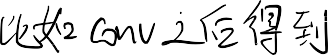 比如2 conv 之后得到